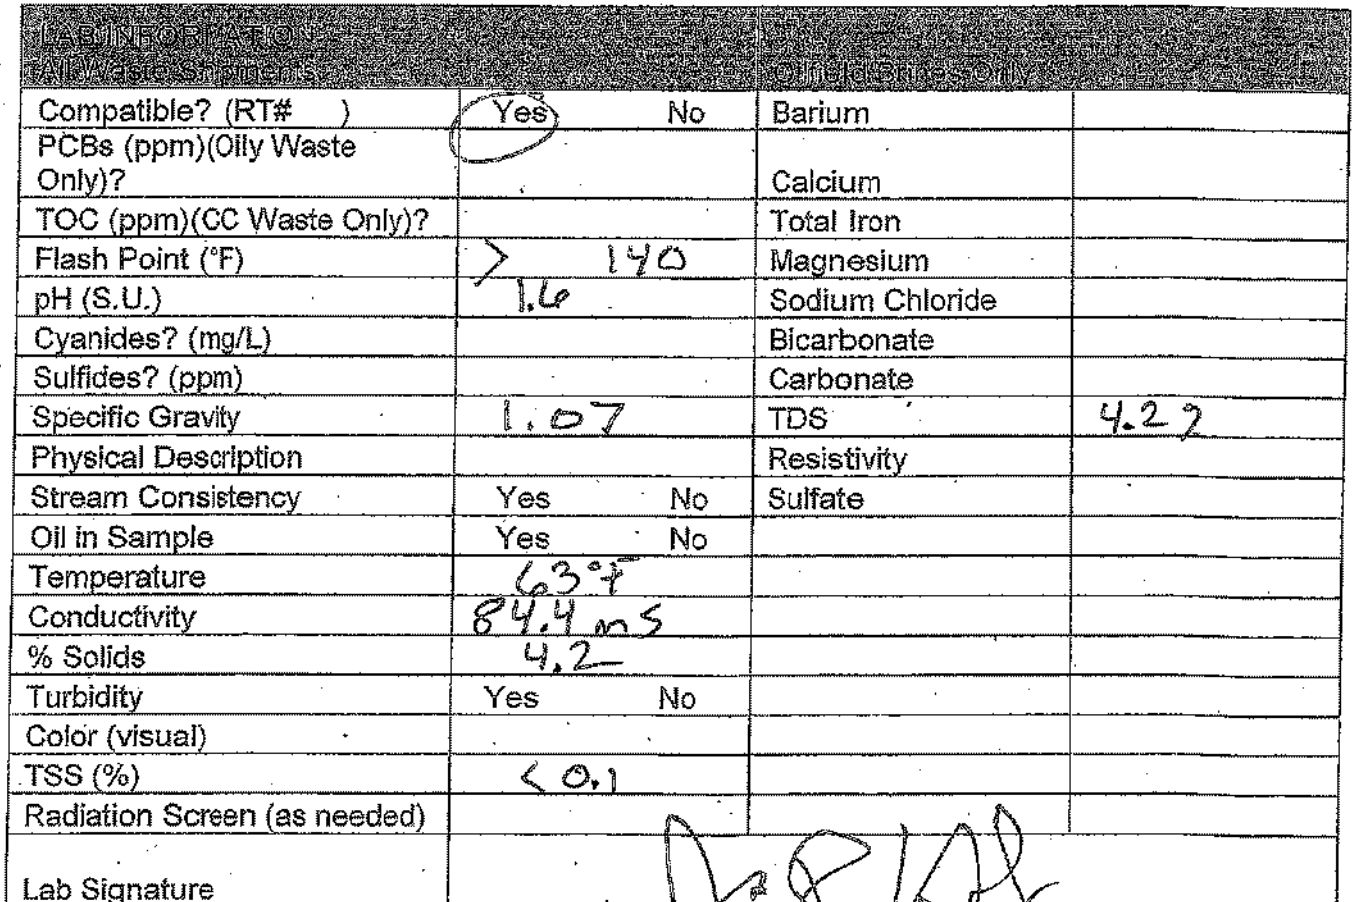 LAB INFORMATION
All Waste Shipments Oilfield Brines Only
Compatible? (RT# ) Yes No Barium
PCBs (ppm)(Oily Waste
Only)? Calcium
TOC (ppm)(CC Waste Only)? Total Iron
Flash Point (°F) > 140 Magnesium
pH (S.U.) 1.6 Sodium Chloride
Cyanides? (mg/L) Bicarbonate
Sulfides? (ppm) Carbonate
Specific Gravity 1.07 TDS 4.2
Physical Description Resistivity
Stream Consistency Yes No Sulfate
Oil in Sample Yes No
Temperature 63°F
Conductivity 84.4 mS
% Solids 4.2
Turbidity Yes No
Color (visual)
TSS (%) < 0.1
Radiation Screen (as needed)
Lab Signature